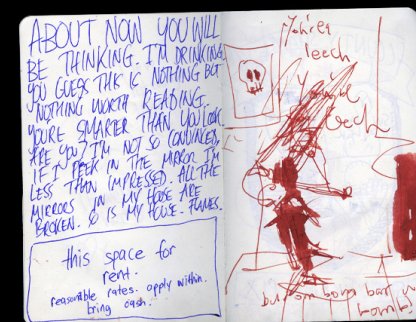 ABOUT NOW YOU WILL
BE THINKING. I'M DRINKING.
YOU GUESS THIS IS NOTHING BUT
NOTHING WORTH READING.
YOURE SMARTER THAN YOU LOOK.
ARE YOU? I'M NOT SO CONVINCED.
IF I PEEK IN THE MIRROR I'M
LESS THAN IMPRESSED. ALL THE
MIRRORS IN MY HOUSE ARE
BROKEN. SO IS MY HOUSE. FLAMES.
this space for
rent.
reasonable rates. apply within.
bring cash.
You're a
leech
You're
leech